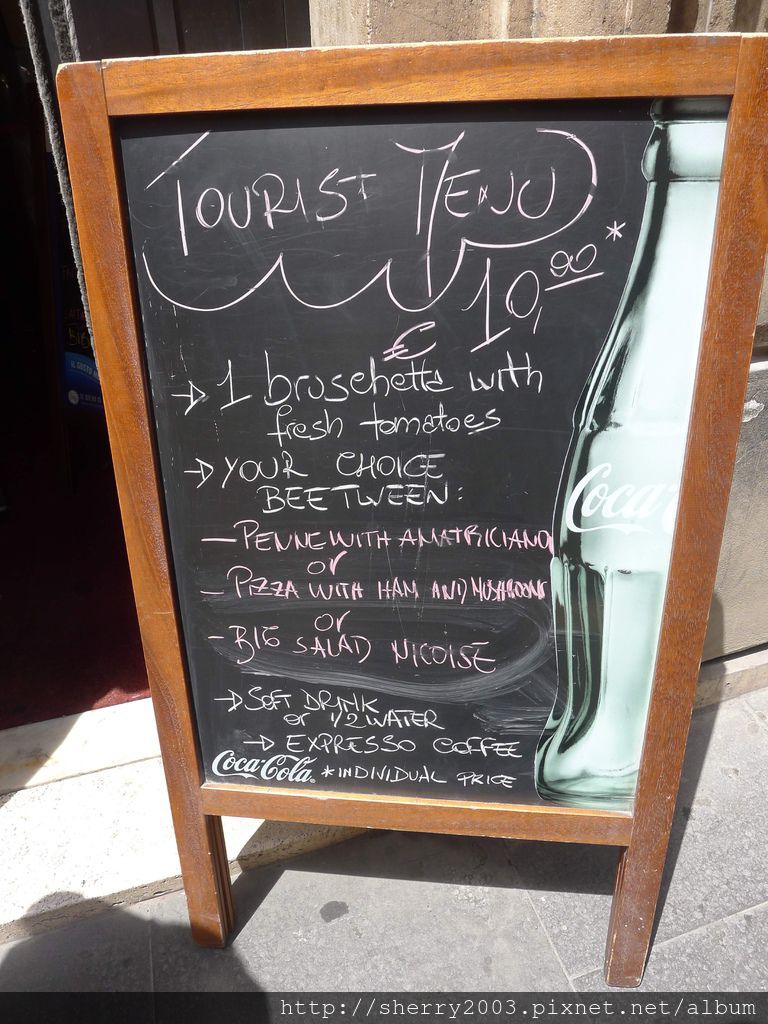 TOURIST MENU
10,00 *
€
→ 1 bruschetta with
fresh tomatoes
→ YOUR CHOICE
BEETWEEN:
— PENNE WITH AMATRICIANA
or
— PIZZA WITH HAM AND MUSHROOMS
or
- BIG SALAD NICOISE
→ SOFT DRINK
or 1/2 WATER
→ EXPRESSO COFFEE
Coca-Cola. * INDIVIDUAL PRICE
Coca-
http://sherry2003.pixnet.net/album